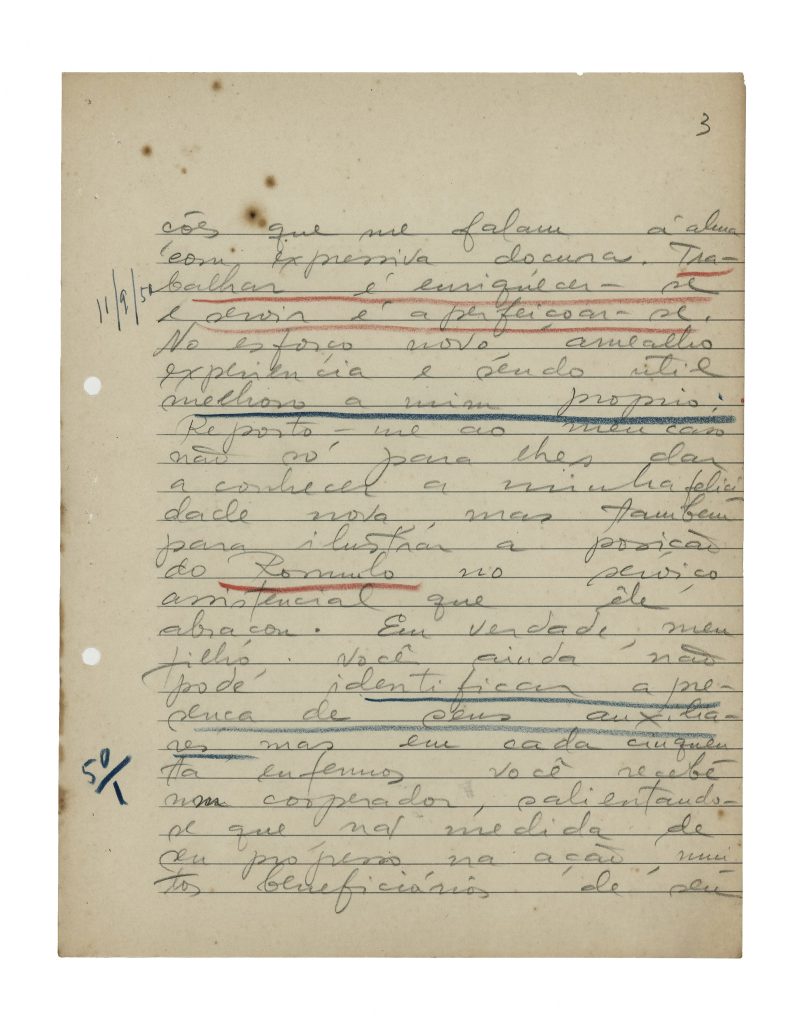 3
ções que me falam á alma
com expressiva doçura. Tra-
balhar é enriquecer-se
e servir é aperfeiçoar-se.
11/9/50
No esforço novo amealho
experiência e sendo útil
melhoro a mim proprio.
Reporto-me ao meu caso
não só para lhes dar
a conhecer a minha felici
dade nova mas também
para ilustrar a posição
do Romulo no serviço
assistencial que êle
abraçou. Em verdade, meu
filho, você ainda não
pode identificar a pre-
sença de seus auxilia-
res mas em cada cinquen
50/1
ta enfermos você recebe
um cooperador, salientando-
se que na medida de
seu progresso na ação mui
tos beneficiários de seu